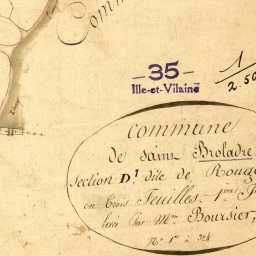 Comm
35
Ille-et-Vilaine
1
2.50
Commune
de saint Broladre
Section D1 dite de Roug
en trois Feuilles 1ere
levée Par Mr Boursier,
No 1er à 324